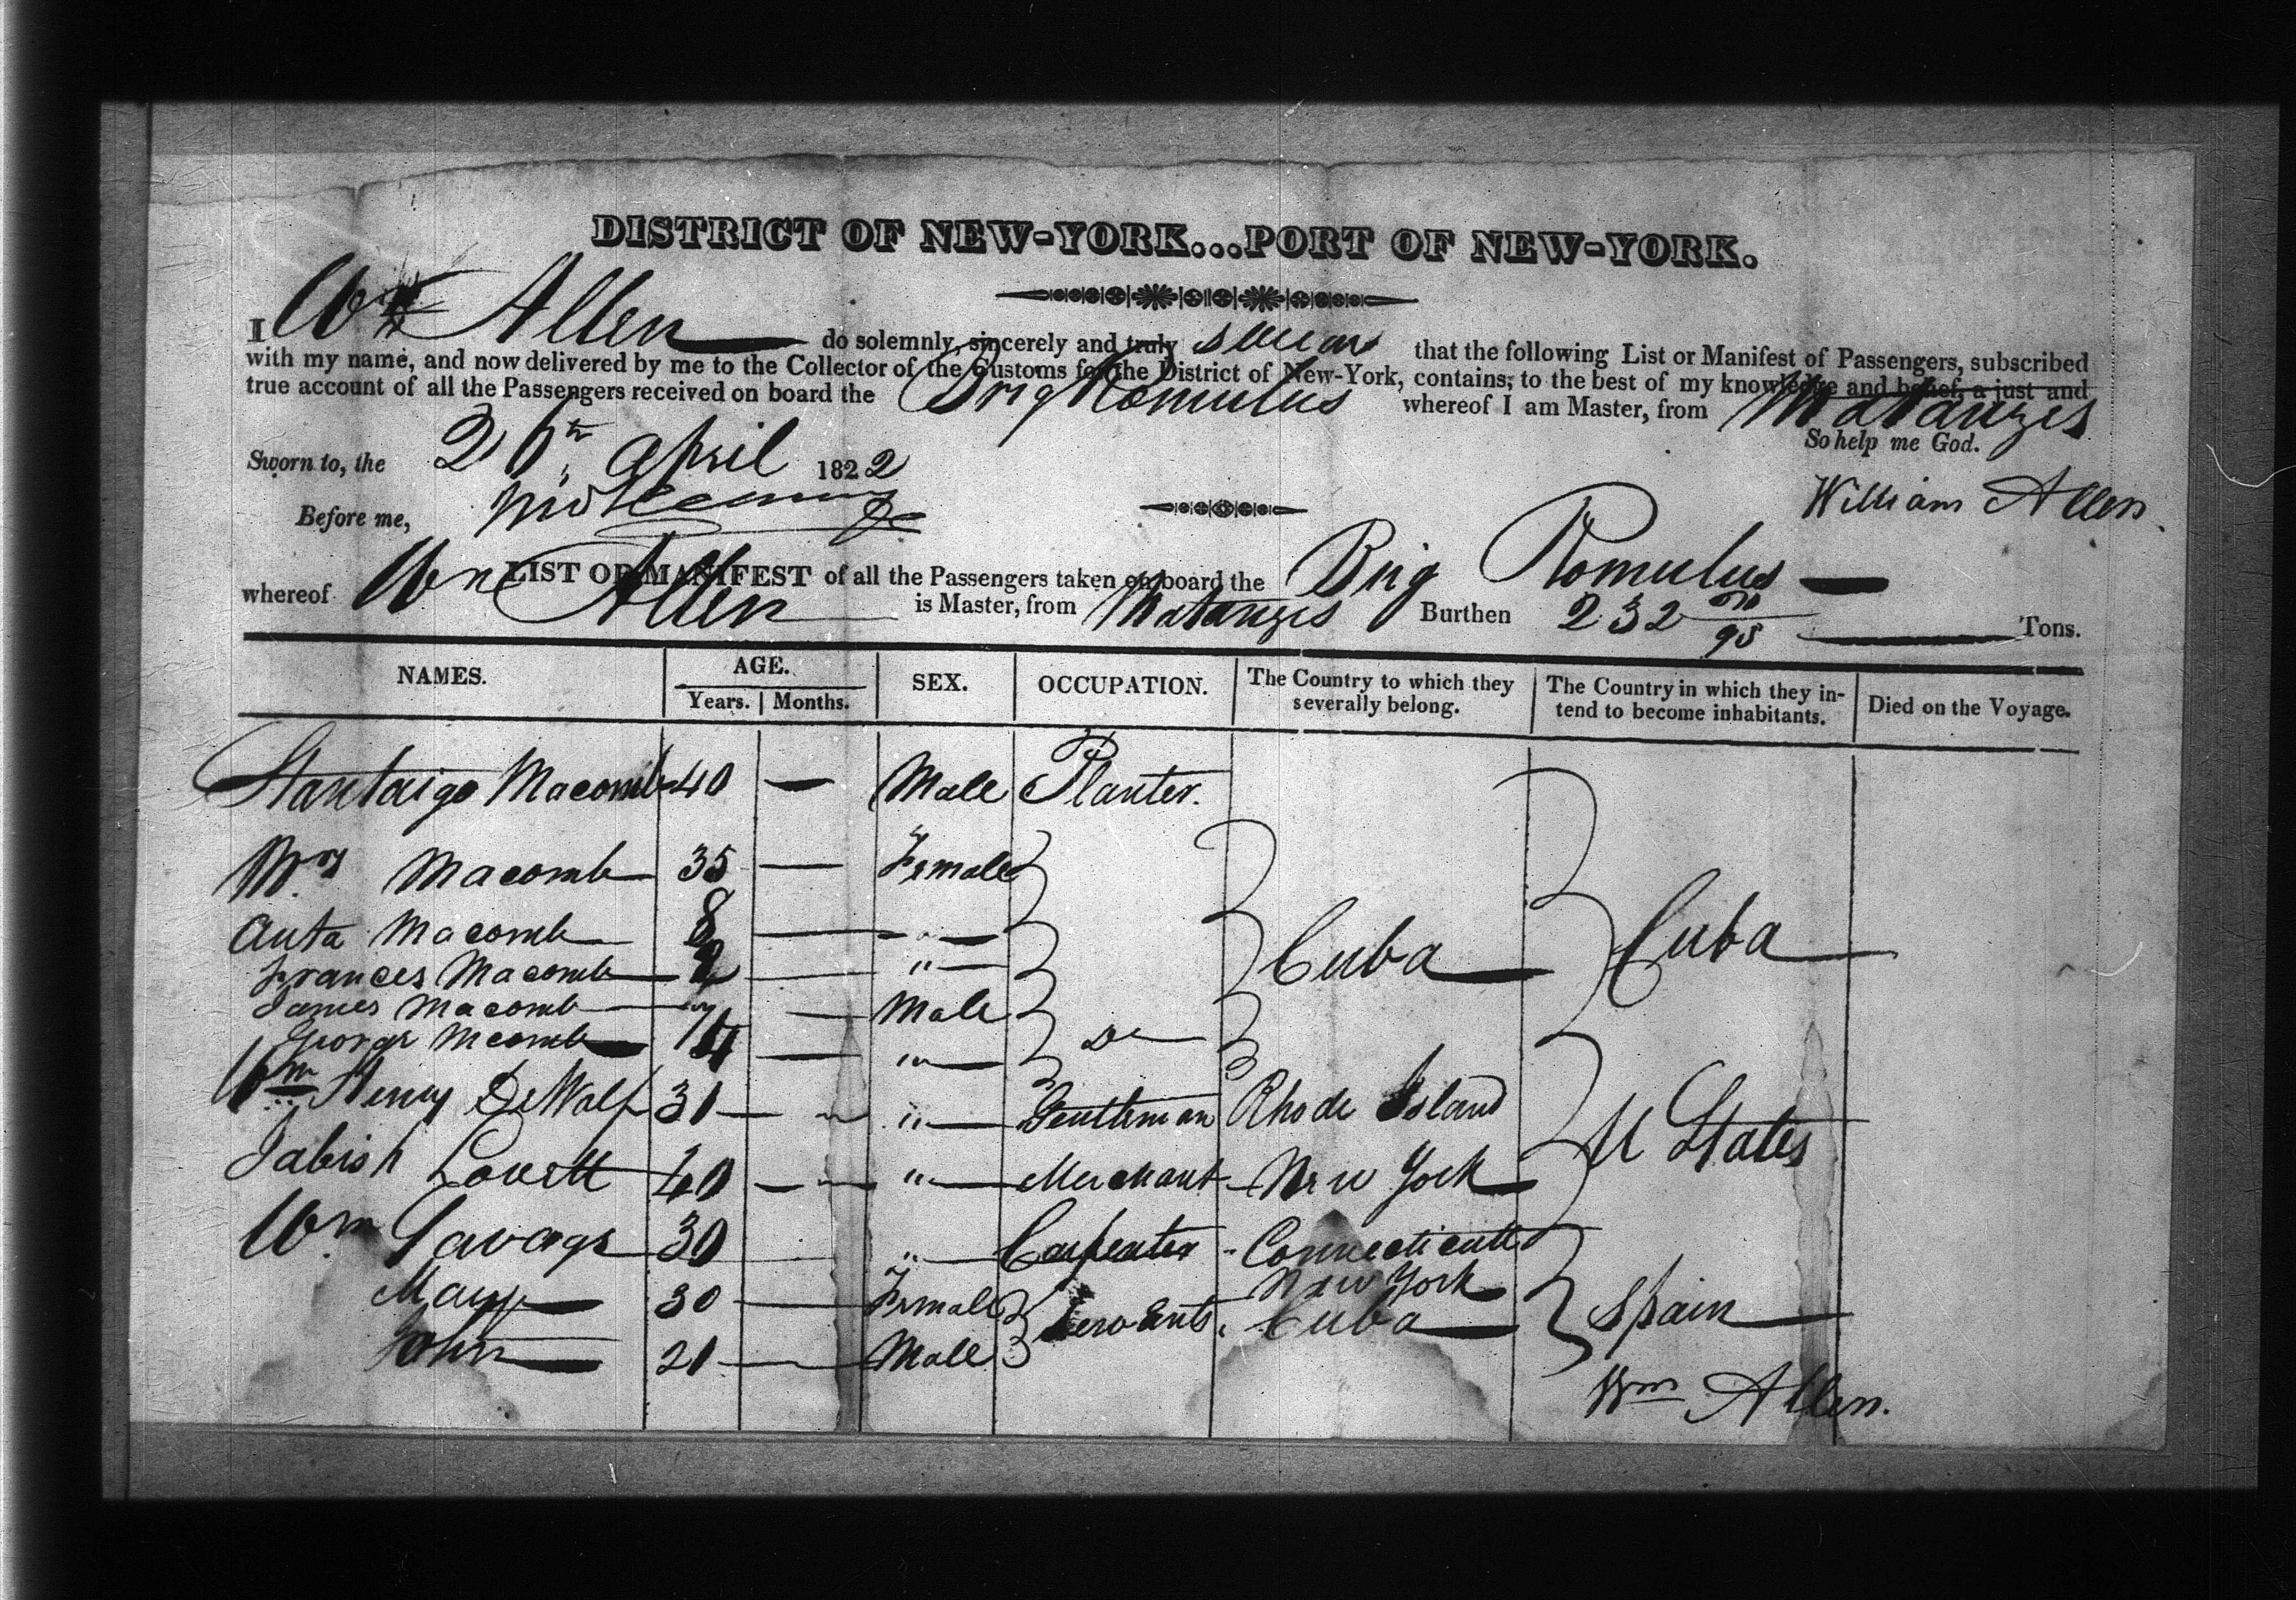 DISTRICT OF NEW-YORK...PORT OF NEW-YORK.
I Wm Allen do solemnly, sincerely and truly swear that the following List or Manifest of Passengers, subscribed
with my name, and now delivered by me to the Collector of the Customs for the District of New-York, contains, to the best of my knowledge and belief, a just and
true account of all the Passengers received on board the Brig Romulus whereof I am Master, from Matanzes
So help me God.
Sworn to, the 26th April 1822
William Allen
Before me,
LIST OR MANIFEST of all the Passengers taken on board the Brig Romulus
whereof Wm Allen is Master, from Matanzes Burthen 232 /95 Tons.
NAMES. AGE. SEX. OCCUPATION. The Country to which they severally belong. The Country in which they intend to become inhabitants. Died on the Voyage.
Years. Months.
Stantaigo Macomb 40 — Male Planter.
Mrs Macomb 35 — Female
Anta Macomb 8 — " Cuba Cuba
Frances Macomb 2 — "
James Macomb — Male
George Mcomb 4 — " Do
Wm Henry DeWolf 31 — " Gentleman Rhode Island
Jabish Lovett 40 — " Merchant New York U States
Wm Savage 30 " Carpenter " Connecticutt
Mary 30 — Female Servants. New York Spain
John 21 — Male Cuba
Wm Allen.